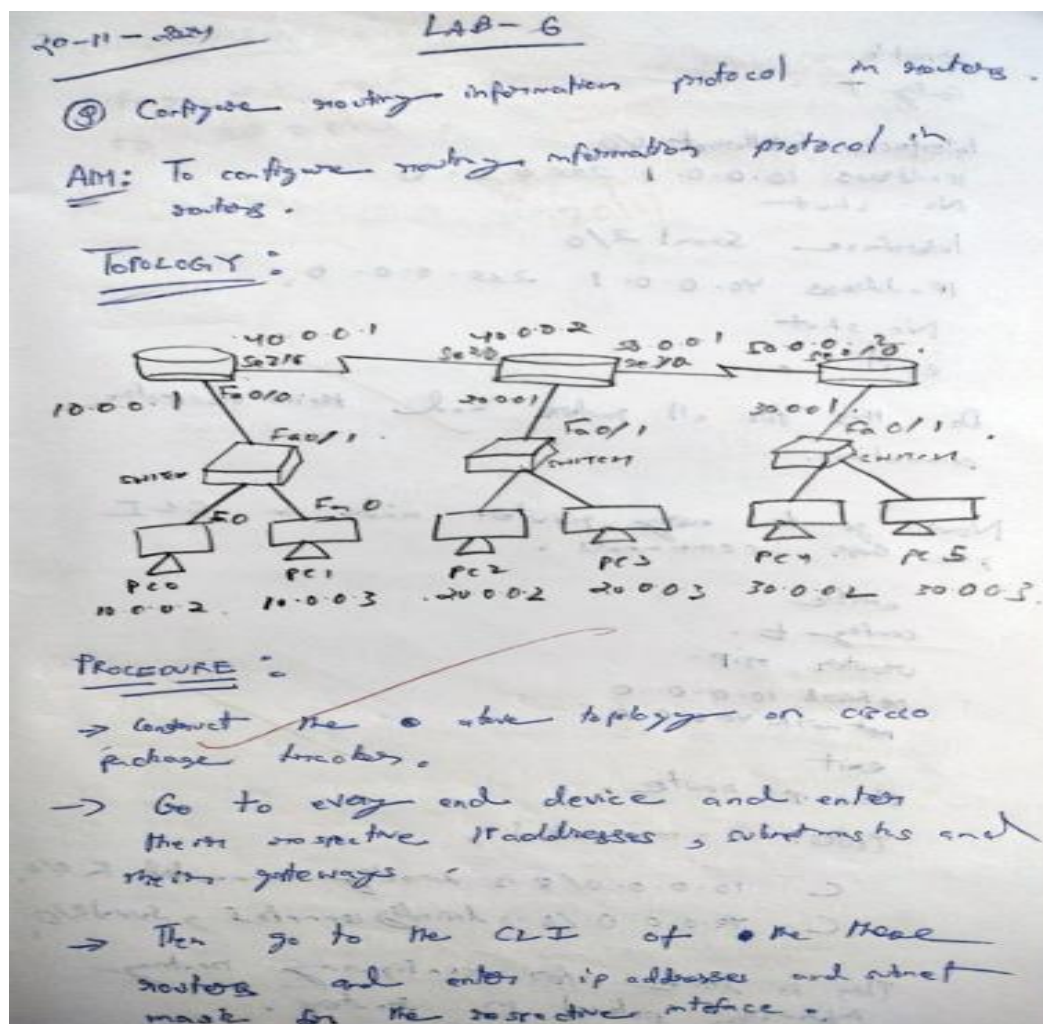 20-11-2024
LAB-6
Configure routing information protocol in routers.
AIM: To configure routing information protocol in
routers.
TOPOLOGY:
40.0.0.1 40.0.0.2 50.0.0.1 50.0.0.2
Se2/0 Se2/0 Se3/0
10.0.0.1 Fa0/0 20.0.0.1 30.0.0.1
Fa0/1 Fa0/1 Fa0/1
SWITCH SWITCH SWITCH
Fa0
PC0 PC1 PC2 PC3 PC4 PC5
10.0.0.2 10.0.0.3 20.0.0.2 20.0.0.3 30.0.0.2 30.0.0.3
PROCEDURE:
→ Construct the above topology on cisco
package tracker.
→ Go to every end device and enter
their respective IP addresses, subnet masks and
their gateways.
→ Then go to the CLI of the three
routers and enter ip addresses and subnet
mask for the respective interface.